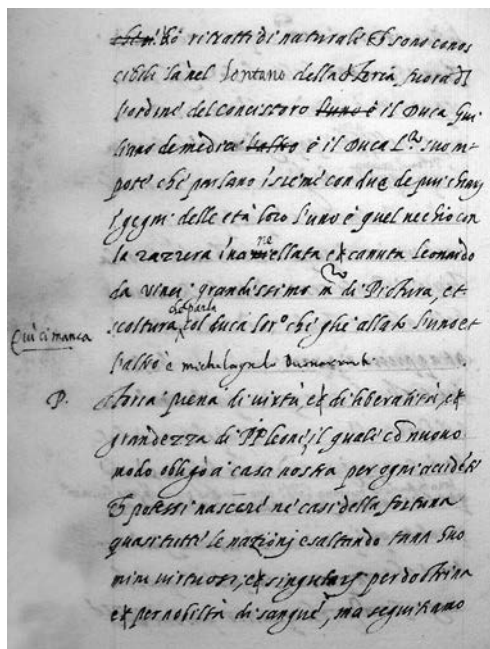 ritratti di naturale et sono conos
cibili la nel lontano della storia fuora del
l'ordine del concistoro l'uno è il Duca Giu
liano de medici l'altro è il Duca L.zo suo ni
pote che parlano insieme con dua de piu chiari
igegni delle età loro l'uno è quel vecchio con
la zazzera inanellata e canuta Leonardo
da vinci grandissimo m.ro di Pictura, et
scoltura, che parla col duca lor.o che gli è allato l'uno et
Qui ci manca
l'altro è michelagnolo Buonarroti.
P. storia piena di virtù e di liberalità, e
grandezza di PP leone, il quale con nuovo
modo obligò a casa nostra per ogni accidente
potessi nascere ne casi della fortuna
quasi tutte le nazioni esaltando tanti huo
mini virtuosi, e singulari per dottrina
e per nobiltà di sangue, ma seguitiamo